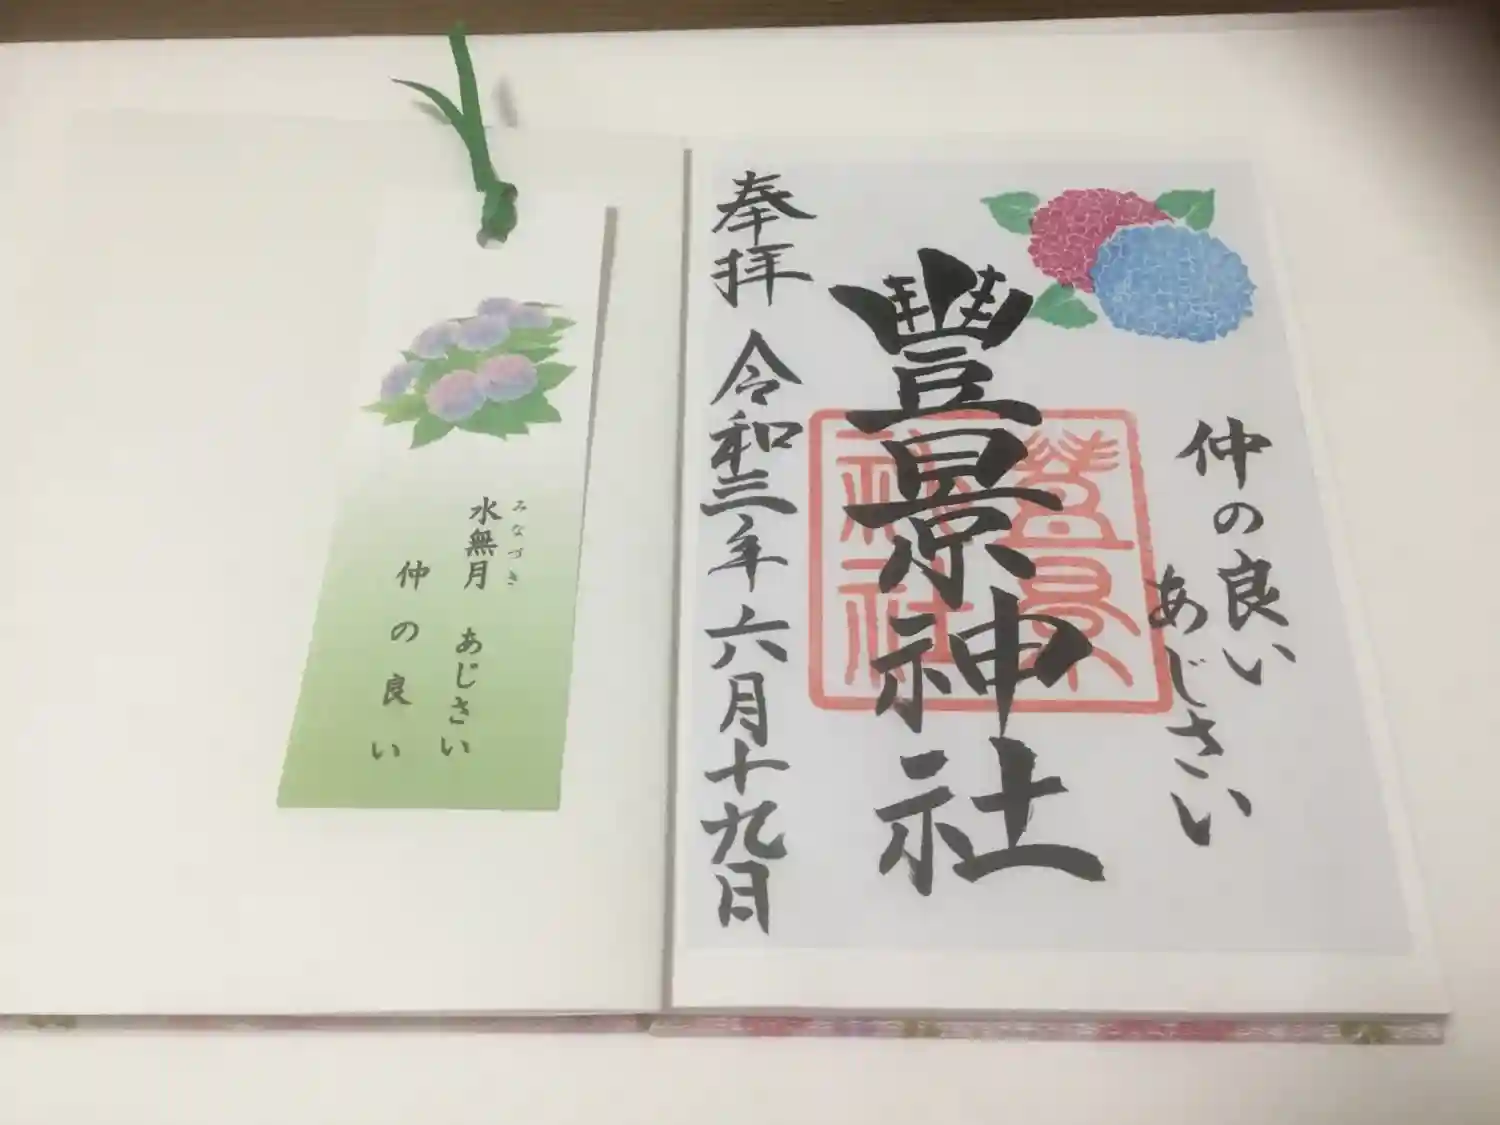 仲の良い
あじさい
豐景神社
豊景
神社
奉拝 令和三年六月十九日
みなづき
水無月 あじさい
仲の良い